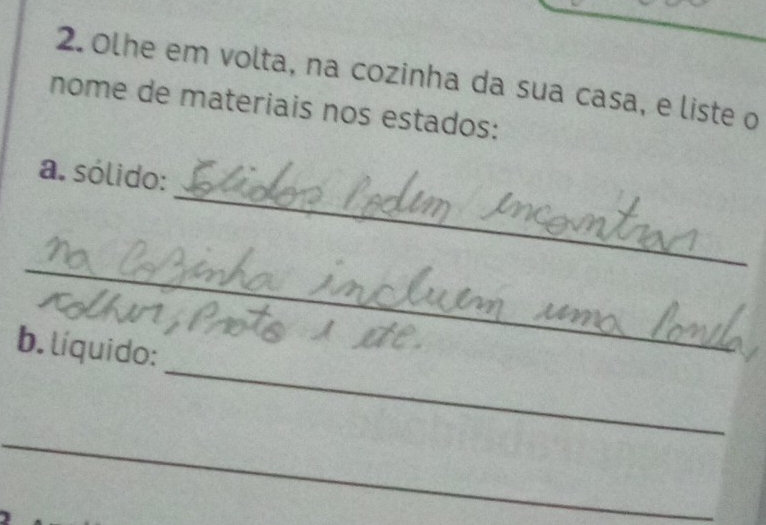 2. Olhe em volta, na cozinha da sua casa, e liste o
nome de materiais nos estados:
a. sólido: Solidos Podem encontrar
na Cozinha incluem uma Panela,
colher, Prato e etc.
b. líquido: